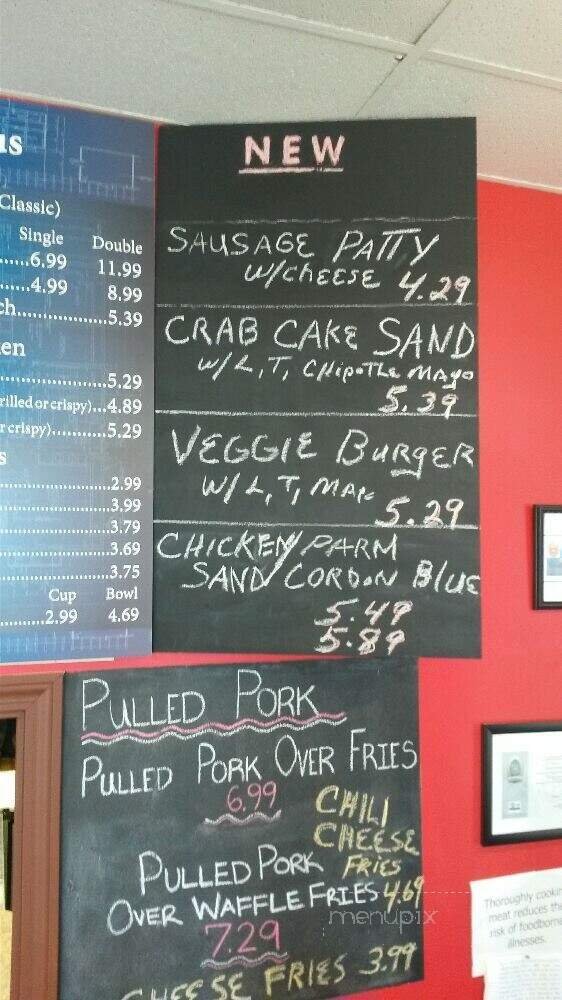 us
Classic)
Single Double
......6.99 11.99
......4.99 8.99
ch....................5.39
en
......................5.29
rilled or crispy)...4.89
r crispy)...........5.29
s
......................2.99
......................3.99
......................3.79
......................3.69
......................3.75
Cup Bowl
......2.99 4.69
NEW
SAUSAGE PATTY
W/CHEESE 4.29
CRAB CAKE SAND
W/L,T, CHIPOTLE MAYO
5.39
VEGGIE BURGER
W/L,T, MAY
5.29
CHICKEN/PARM
SAND/CORDON BLUE
5.49
5.89
PULLED PORK
PULLED PORK OVER FRIES
6.99
CHILI
CHEESE
FRIES
4.69
PULLED PORK
OVER WAFFLE FRIES
7.29
CHEESE FRIES 3.99
menupix
Thoroughly cookin
meat reduces the
risk of foodborne
illnesses.